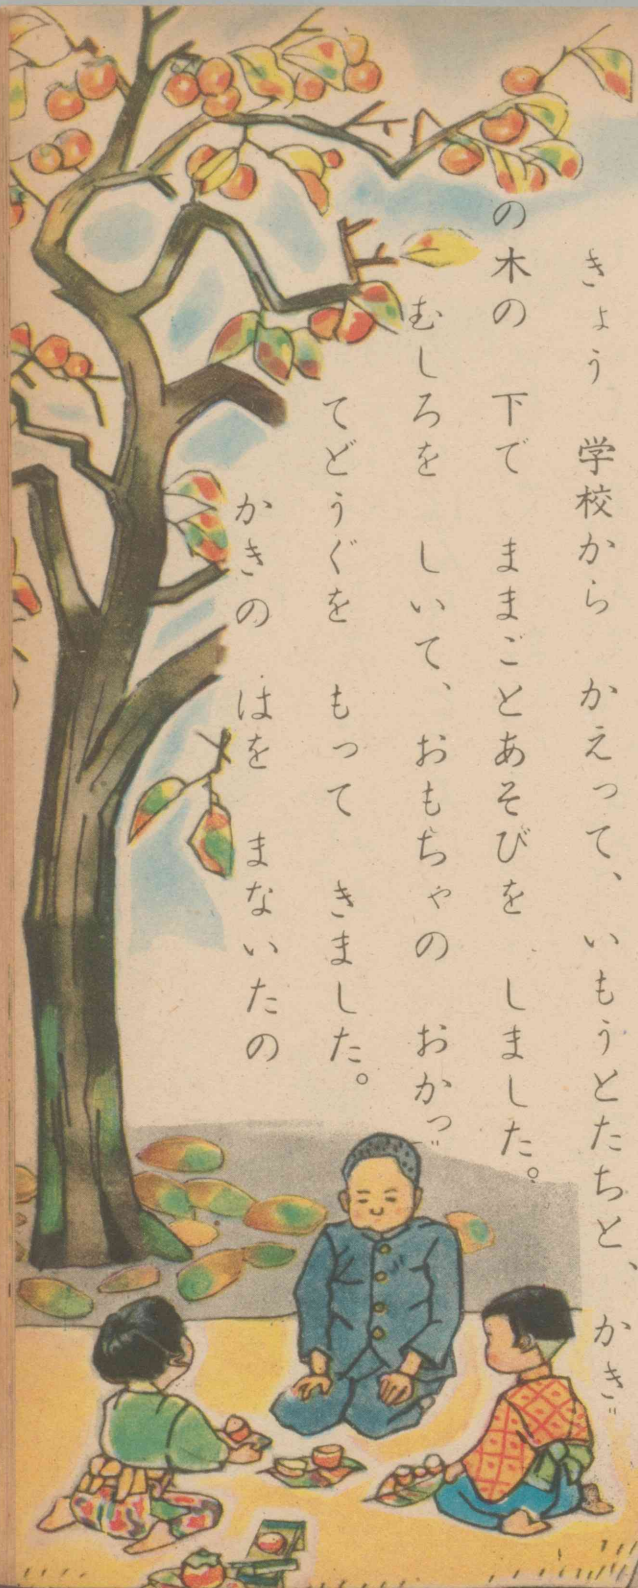 きょう 学校から かえって、いもうとたちと、かき＝
の木の 下で ままごとあそびを しました。
むしろを しいて、おもちゃの おかっ＝
てどうぐを もって きました。
かきの はを まないたの